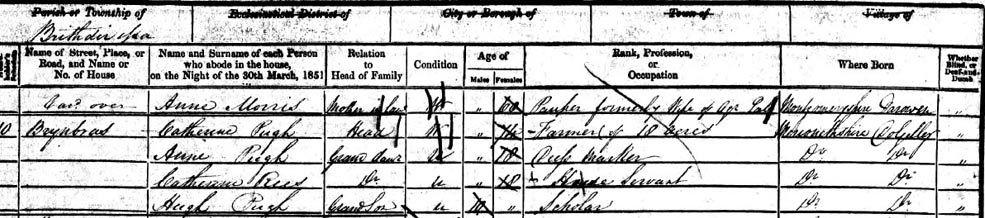 Parish or Township of Ecclesiastical District of City or Borough of Town of Village of
Brithdir
Name of Street, Place, or Road, and Name or No. of House
Name and Surname of each Person who abode in the house, on the Night of the 30th March, 1851
Relation to Head of Family
Condition
Age of
Males Females
Rank, Profession, or Occupation
Where Born
Whether Blind, or Deaf-and-Dumb
over Anne Morris Mother in law W " Pauper formerly Wife of Agr Montgomeryshire "
Catherine Pugh Head W " Farmer of 18 acres Merionethshire "
Anne Pugh Grand daur U " 18 Do Do "
Catherine Rees Do U " House Servant Do Do "
Hugh Pugh Grand Son U 10 " Scholar Do Do "